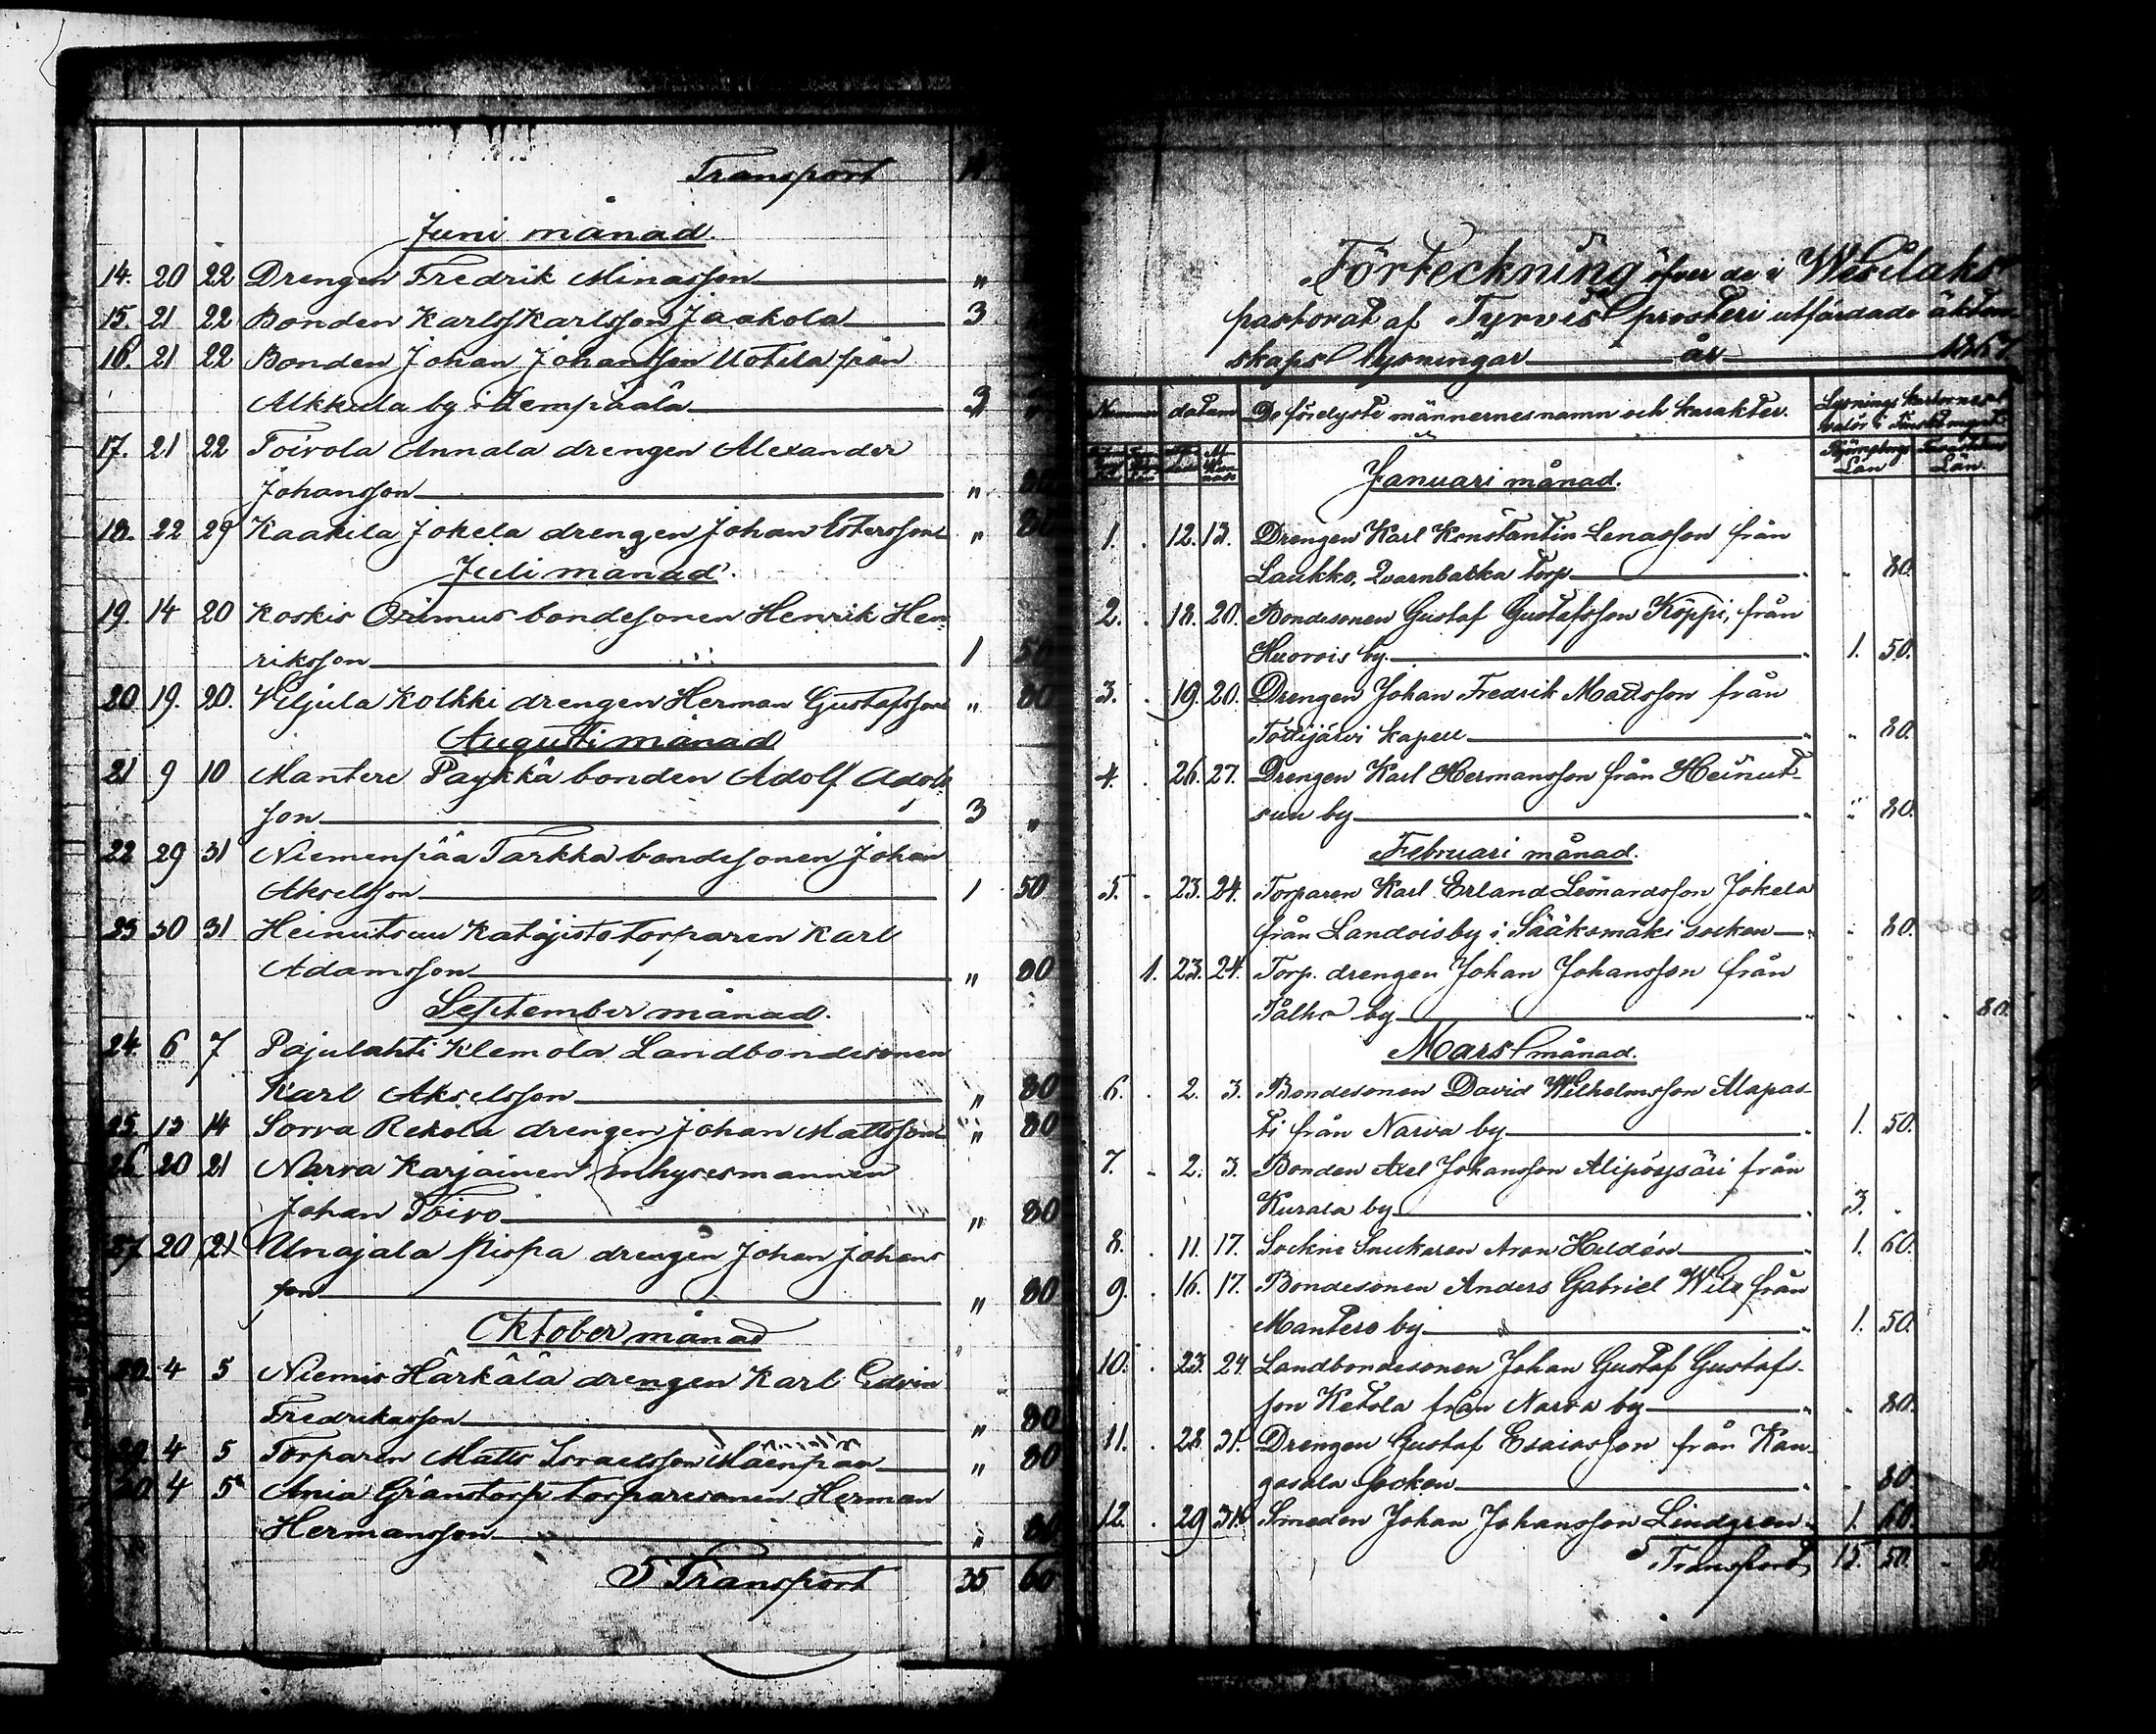 Transport
Juni månad.
14. 20 22 Drengen Fredrik Minasson "
15. 21 22 Bonden Karl Karlsson Jaakola 3
16. 21 22 Bonden Johan Johansson Uotila från
Alkkula by i Lempäälä 3 "
17. 21 22 Toivola Annala drengen Alexander
Johansson " 80
18. 22 29 Kaakila Jokela drengen Johan Estersson " 80
Juli månad.
19. 14 20 Koskis Osimus bondesonen Henrik Hen-
riksson 1 50
20 19. 20. Viljula Kolkki drengen Herman Gustafsson " 80
Augusti månad
21 9 10 Mantere Paykkä bonden Adolf Adolfs-
son 3 "
22 29 31 Niemenpää Tarkka bondesonen Johan
Akselsson 1 50
23 30 31 Heinutsuu Katajisto torparen Karl
Adamsson " 80
September månad.
24. 6 7 Pajulahti Klemola Landbondesonen
Karl Akselsson " 80
25. 13 14 Sorva Rekola drengen Johan Mattsson " 80
26 20 21 Narva Karjainen inhysesmannen
Johan Toivo " 80
27 20 21 Unajala Pispa drengen Johan Johans
son " 80
Oktober månad
28. 4 5 Niemis Härkälä drengen Karl Edvin
Fredriksson " 80
29. 4 5 Torparen Matts Israelsson Mäenpää " 80
30 4 5 Ania Gränstorp torparesonen Herman
Hermansson " 80
Transport 35 60
Förteckning öfver de i Wesilaks
pastorat af Tyrvis prosteri utfärdade äkten-
skaps lysningar år 1867
Nummer datum De förelyste männernes namn och karakter. Lysnings kartornes
valör i Finskt mynt.
Län Län.
Januari månad.
1. 12. 13. Drengen Karl Konstantin Lenasson från
Laukko, Qvarnbacka torp " 80.
2. 18. 20. Bondesonen Gustaf Gustafsson Köppi, från
Huovois by. 1. 50.
3. 19. 20. Drengen Johan Fredrik Mattsson från
Tottijärvi kapell " 80.
4. 26. 27. Drengen Karl Hermansson från Heinut-
suu by " 80.
Februari månad.
5. 23. 24. Torparen Karl Erland Leonardsson Jokela
från Landois by i Sääksmäki socken " 80.
1. 23. 24. Torp. drengen Johan Johansson från
Palho by 80.
Mars månad.
6. 2. 3. Bondesonen David Wilhelmsson Alapas-
ti från Narva by 1. 50.
7. 2. 3. Bonden Axel Johansson Alipöysäri från
Kurala by 3.
8. 11. 17. Sockne Snickaren Aron Heldén 1. 60.
9. 16. 17. Bondesonen Anders Gabriel Wilo från
Mantero by 1. 50.
10. 23. 24 Landbondesonen Johan Gustaf Gustafs-
son Ketola från Narva by 80.
11. 28. 31. Drengen Gustaf Esaiasson från Kan-
gasala Socken 80.
12. 29 31. Smeden Johan Johansson Lindgren 1. 60.
Transport 15. 50. 80